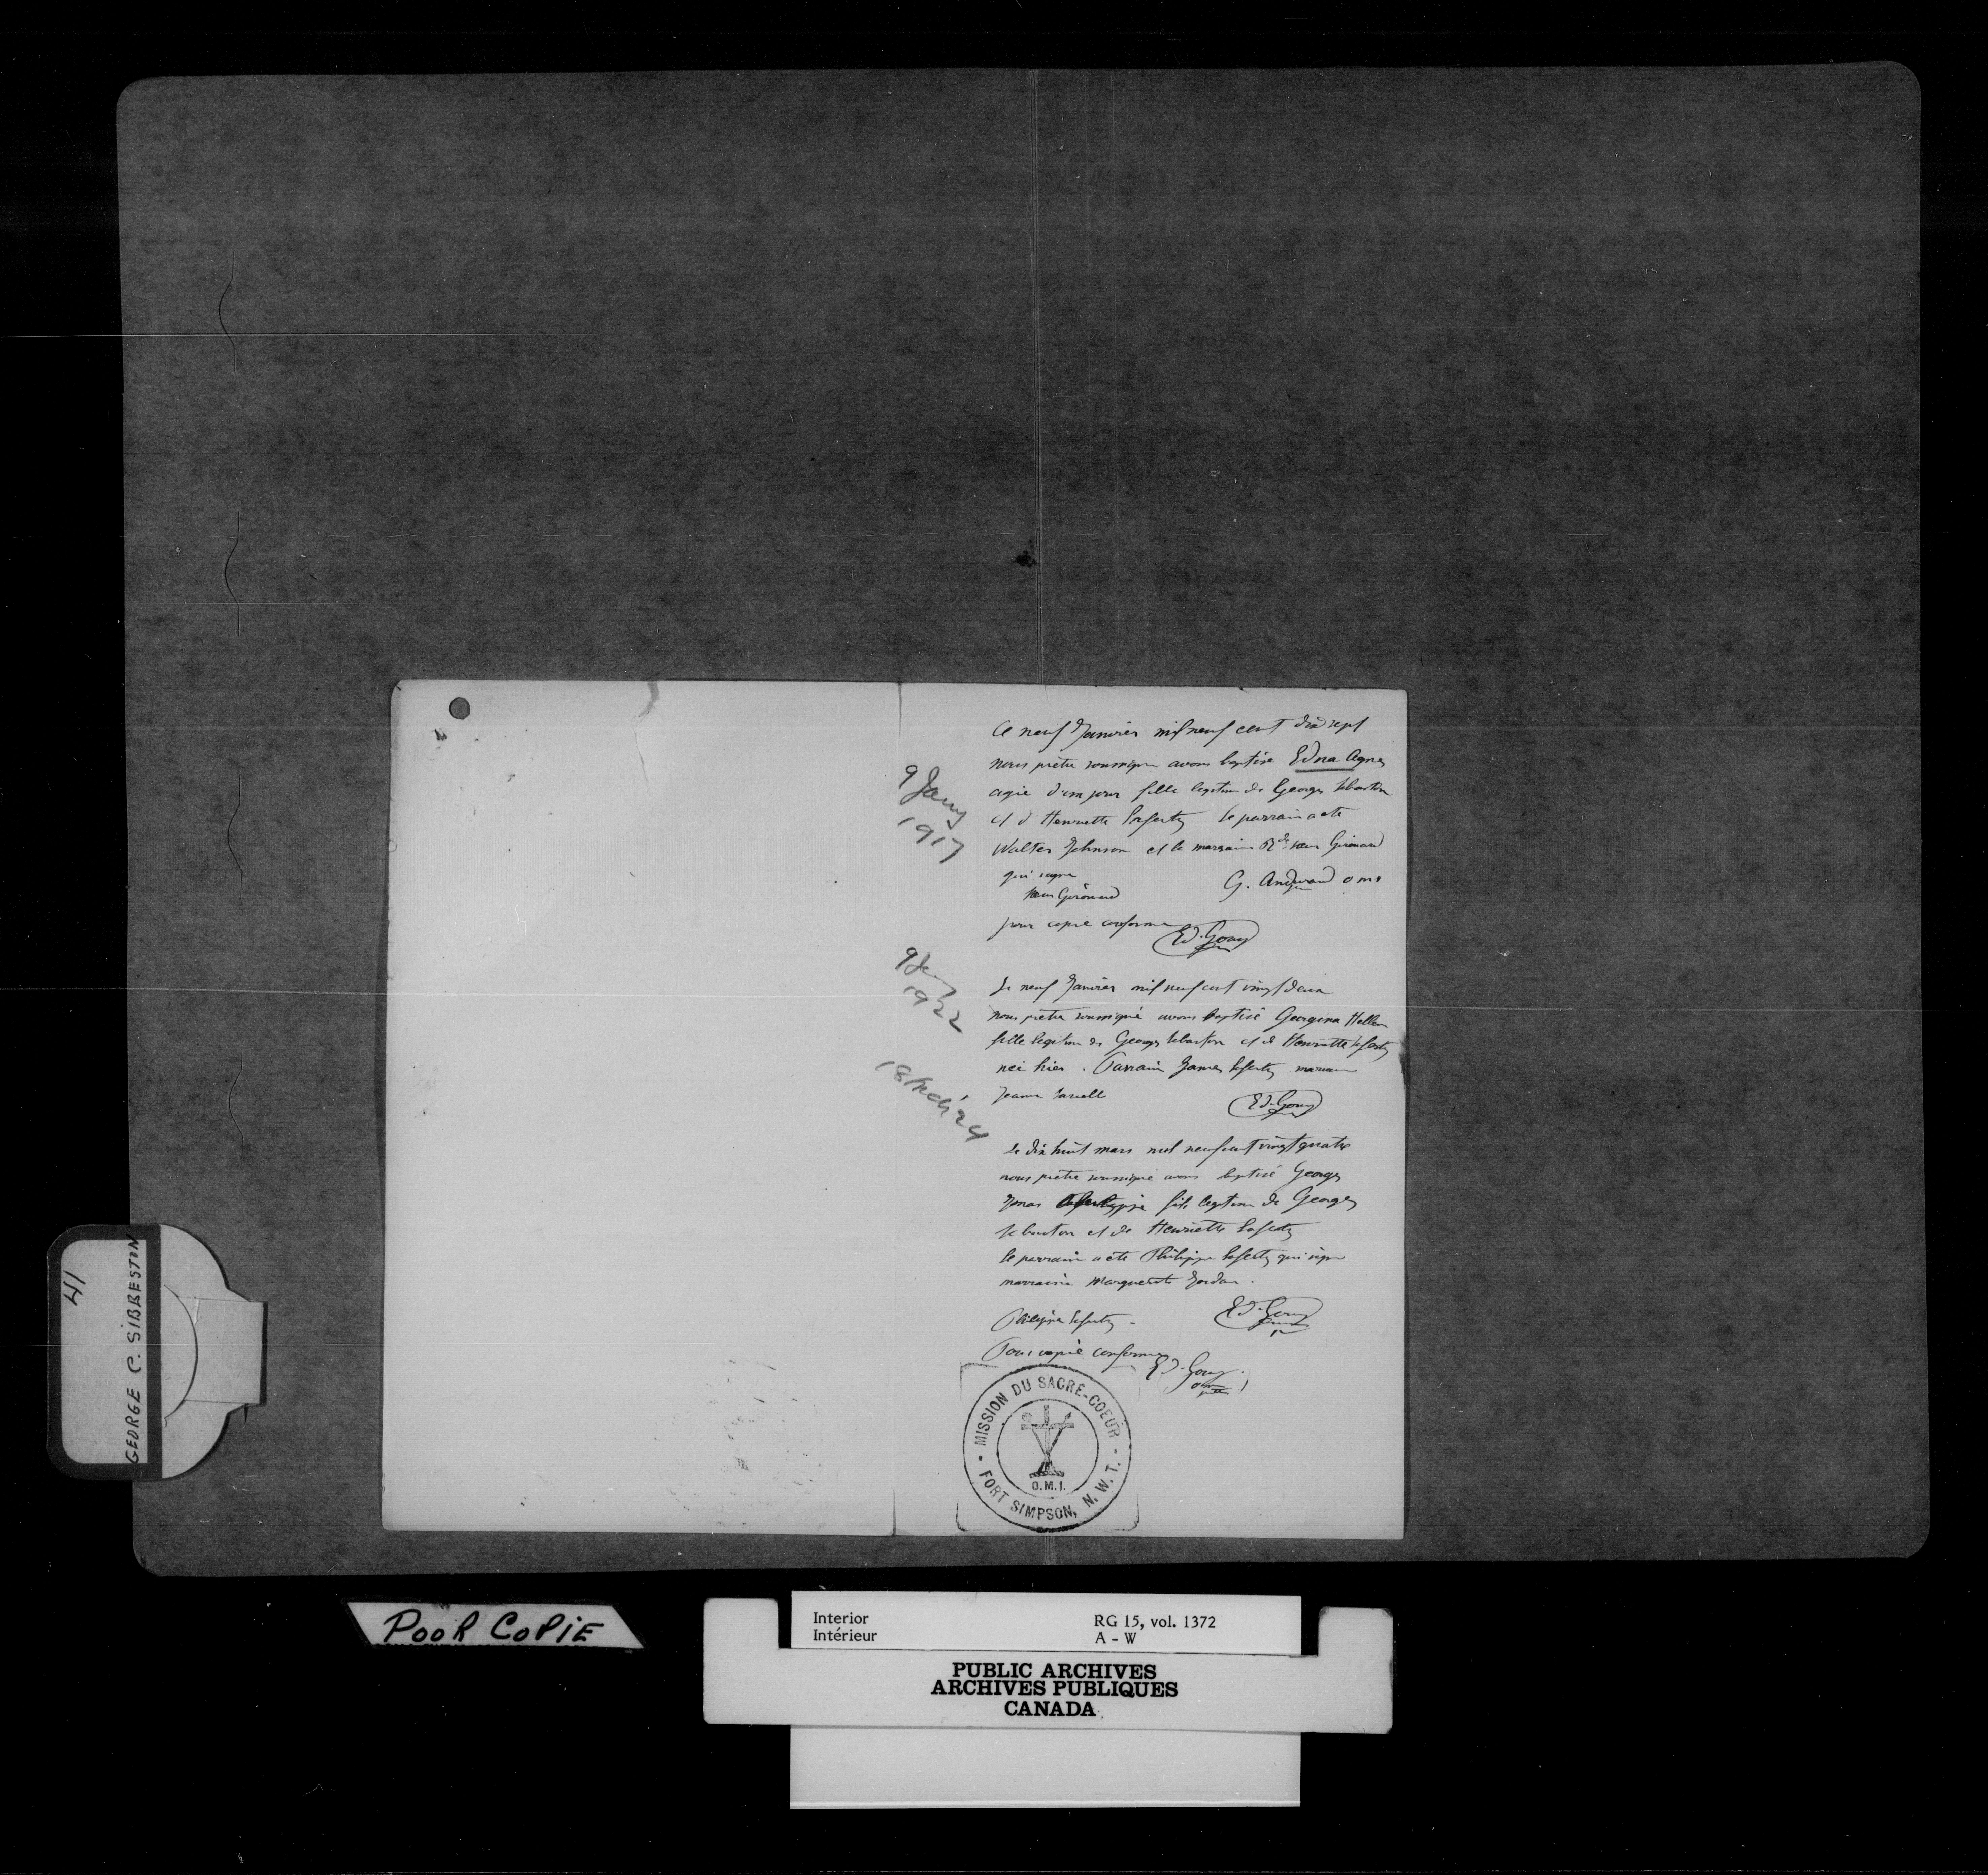 Ce neuf Janvier mil neuf cent dix sept
nous pretre soussigne avons baptise Edna Agnes
agée d'un jour fille legitime de Georges
et d'Henriette Laferty le parrain a ete
Walter Johnson et la marraine Rde soeur Girouard
qui signe
soeur Girouard
G. Andurand o m i
pour copie conforme
Ed. Gouy
9 Jany
1917
Le neuf Janvier mil neuf cent vingt deux
nous pretre soussigné avons baptisé Georgina Hellen
fille legitime de Georges et de Henriette Laferty
née hier. Parrain James Laferty marraine
Jeanne
Ed. Gouy
9 Jany
1922
Le dix huit mars mil neuf cent vingt quatre
nous pretre soussigné avons baptisé Georges
Jonas fils legitime de Georges
et de Henriette Laferty
le parrain a ete Philippe Laferty qui signe
marraine Marguerite
Philippe Laferty -
Ed. Gouy
18 Mch '24
Pour copie conforme
Ed. Gouy
MISSION DU SACRÉ-COEUR
O.M.I.
FORT SIMPSON, N.W.T.
41
GEORGE C. SIBBESTON
POOR COPIE
Interior RG 15, vol. 1372
Intérieur A - W
PUBLIC ARCHIVES
ARCHIVES PUBLIQUES
CANADA